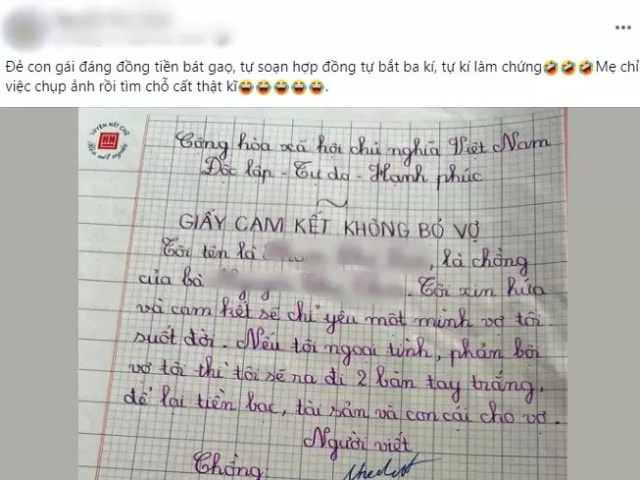 Đẻ con gái đáng đồng tiền bát gạo, tự soạn hợp đồng tự bắt ba kí, tự kí làm chứng🤣🤣🤣Mẹ chỉ
việc chụp ảnh rồi tìm chỗ cất thật kĩ😂😂😂😂😂.
Cộng hòa xã hội chủ nghĩa Việt Nam
Độc lập - Tự do - Hạnh phúc
GIẤY CAM KẾT KHÔNG BỎ VỢ
Tôi tên là , là chồng
của bà . Tôi xin hứa
và cam kết sẽ chỉ yêu một mình vợ tôi
suốt đời. Nếu tôi ngoại tình, phản bội
vợ tôi thì tôi sẽ ra đi 2 bàn tay trắng,
để lại tiền bạc, tài sản và con cái cho vợ.
Người viết
Chồng: